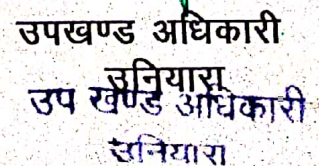 उपखण्ड अधिकारी
उनियारा
उप खण्ड अधिकारी
उनियारा